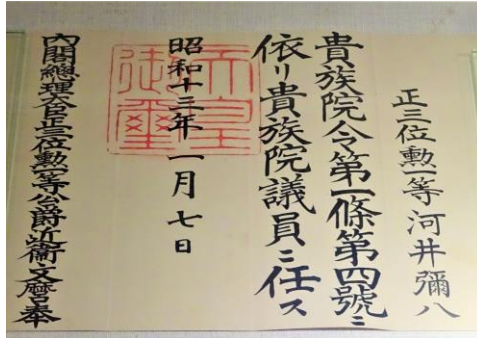 正三位勲一等河井彌八
貴族院令第一條第四號ニ
依リ貴族院議員ニ任ス
天皇御璽
昭和十三年一月七日
內閣總理大臣從二位勲一等公爵近衞文麿奉